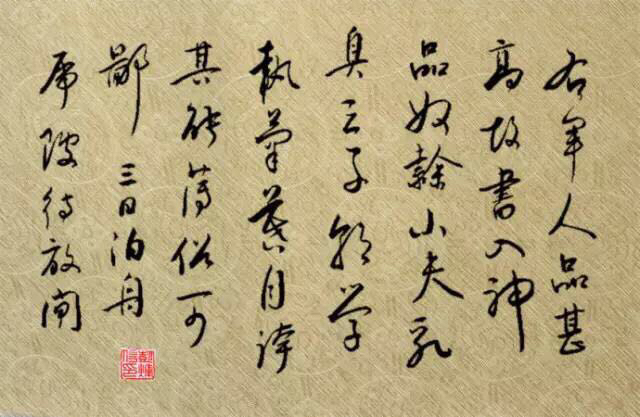 右軍人品甚
高故書入神
品奴隸小夫乳
臭之子朝学
執筆暮自誇
其能薄俗可
鄙 三日泊舟
虎陂待放閘